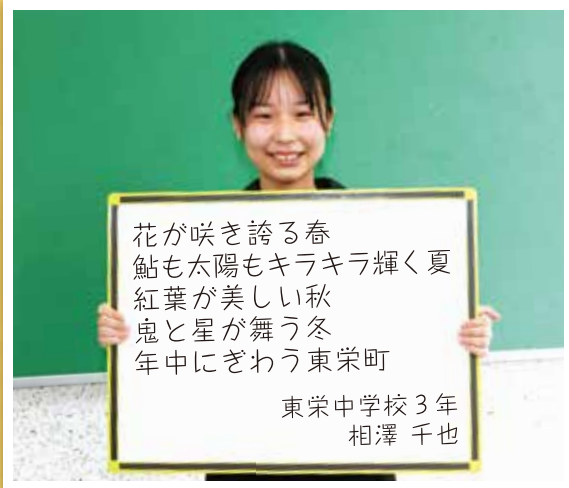 花が咲き誇る春
鮎も太陽もキラキラ輝く夏
紅葉が美しい秋
鬼と星が舞う冬
年中にぎわう東栄町
東栄中学校3年
相澤 千也